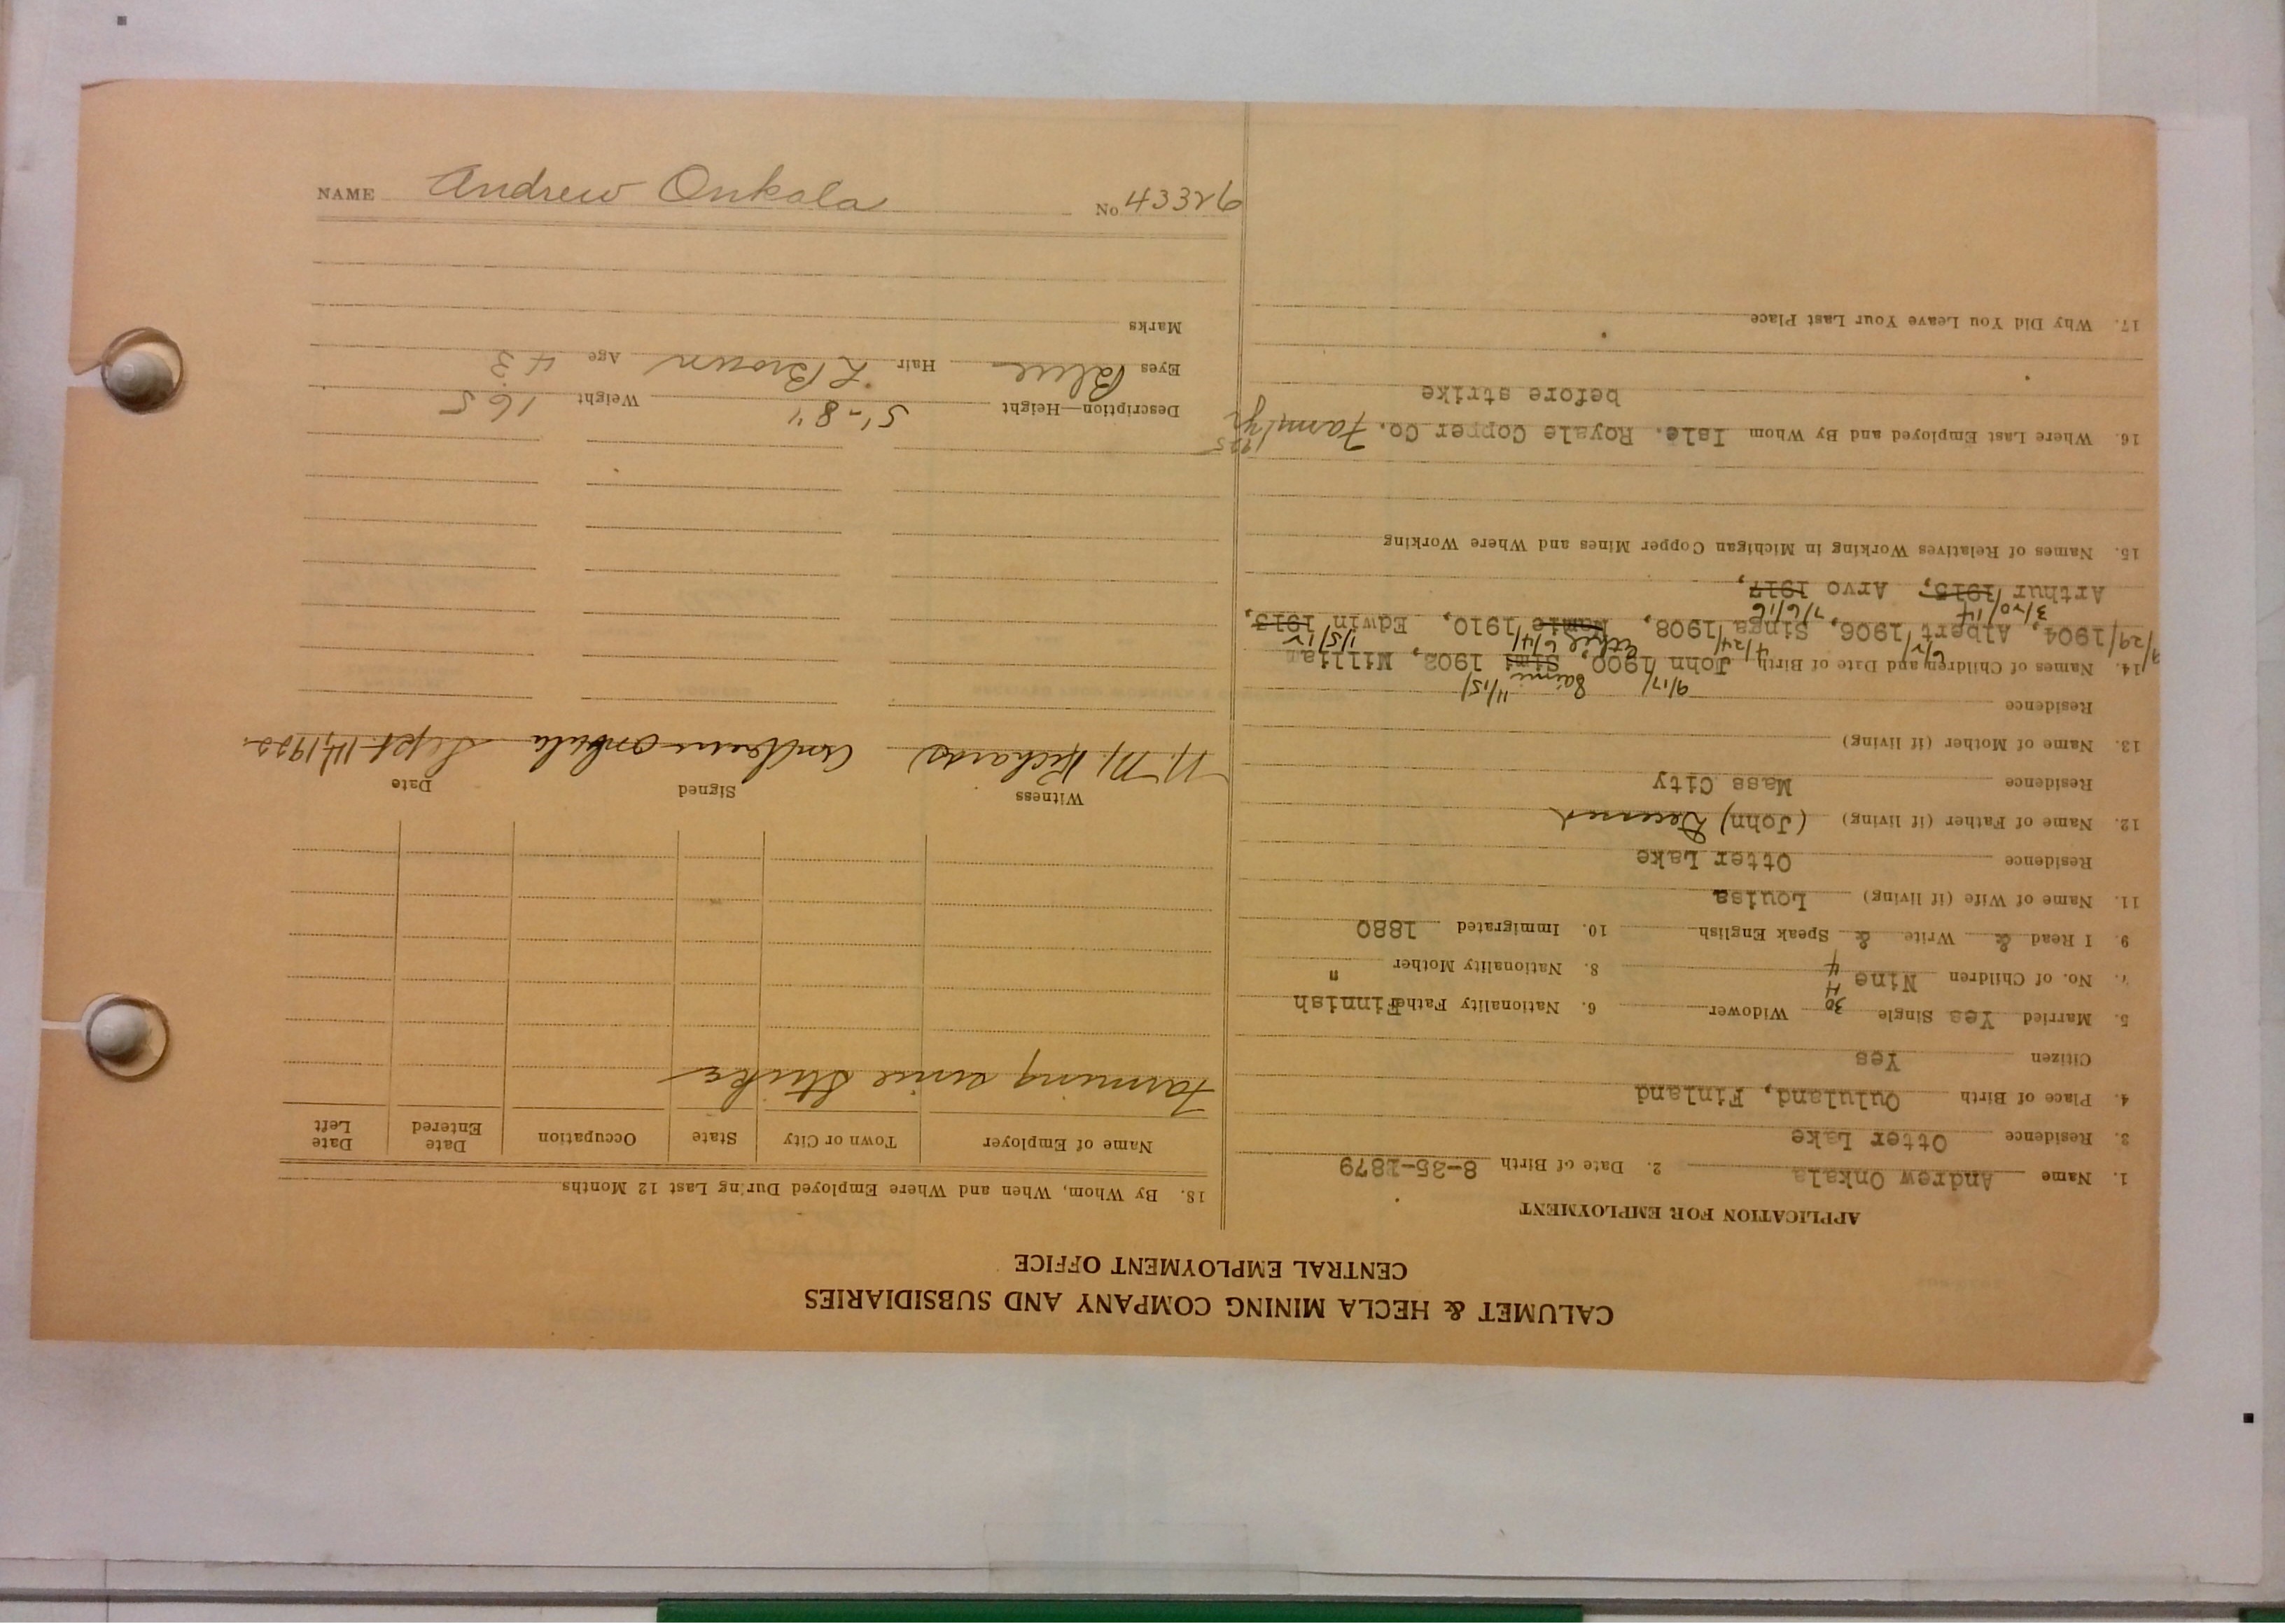 CALUMET & HECLA MINING COMPANY AND SUBSIDIARIES
CENTRAL EMPLOYMENT OFFICE
APPLICATION FOR EMPLOYMENT
1. Name Andrew Onkala 2. Date of Birth 8-35-1879
3. Residence Otter Lake
4. Place of Birth Oululand, Finland
Citizen Yes
5. Married Yes Single Widower 6. Nationality Father Finnish
30 H
7. No. of Children Nine 4 8. Nationality Mother "
9. I Read & Write & Speak English 10. Immigrated 1880
11. Name of Wife (if living) Louisa
Residence Otter Lake
12. Name of Father (if living) (John) Deceased
Residence Mass City
13. Name of Mother (if living)
Residence
9/17/ Saimi 11/15/
14. Names of Children and Date of Birth John 1900, Simi 1902, William
9/29/1904, 6/2/ Albert 1906, 4/24/ Singa 1908, Ethel 6/4/ 1910, 11/5/12 Edwin 1913,
3/20/14 7/6/16
Arthur 1915, Arvo 1917,
15. Names of Relatives Working in Michigan Copper Mines and Where Working
16. Where Last Employed and By Whom Isle. Royale Copper Co. Farm 1 yr 1925
before strike
17. Why Did You Leave Your Last Place
18. By Whom, When and Where Employed During Last 12 Months
Name of Employer Town or City State Occupation Date Entered Date Left
Farming since Strike
Witness Signed Date
W. M. Richards Andrew Onkala Sept. 14, 1922.
Description—Height 5'-8" Weight 165
Eyes Blue Hair L Brown Age 43
Marks
NAME Andrew Onkala No 43326